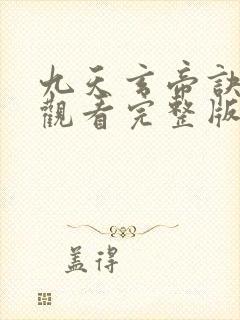 九天玄帝訣
觀看完整版
盖得